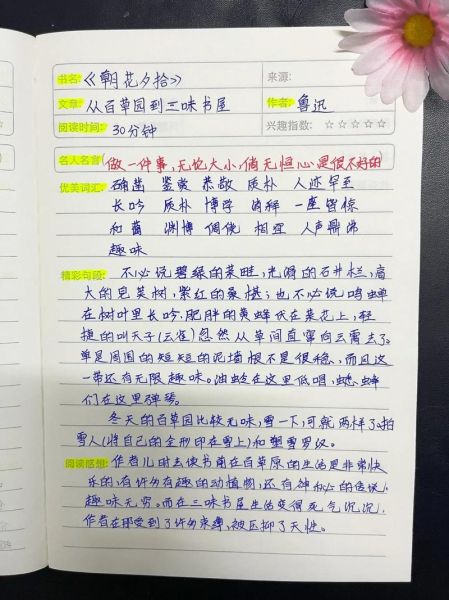 书名:《朝花夕拾》 来源:
文章: 从百草园到三味书屋 作者: 鲁迅
阅读时间: 30分钟 兴趣指数: ☆☆☆☆☆
名人名言: 做一件事,无论大小,倘无恒心,是很不好的
优美词汇: 确凿 鉴赏 恭敬 质朴 人迹罕至
长吟 质朴 博学 消释 一座皆惊
和蔼 渊博 倜傥 相宜 人声鼎沸
趣味
精彩句段: 不必说碧绿的菜畦,光滑的石井栏,高
大的皂荚树,紫红的桑椹;也不必说鸣蝉
在树叶里长吟,肥胖的黄蜂伏在菜花上,轻
捷的叫天子(云雀)忽然从草间直窜向云霄去了。
单是周围的短短的泥墙根不是很稳,而且这
一带还有无限趣味。油蛉在这里低唱,蟋蟀
们在这里弹琴。
冬天的百草园比较无味,雪一下,可就两样了。拍
雪人(将自己的全形印在雪上)和塑雪罗汉。
阅读感想: 作者儿时去读书前在百草原的生活是非常快
乐的,有许许多有趣的动植物,还有神秘的传说,
趣味无穷。而在三味书屋生活变得死气沉沉,
作者在那受到了许多束缚,被压抑了天性。